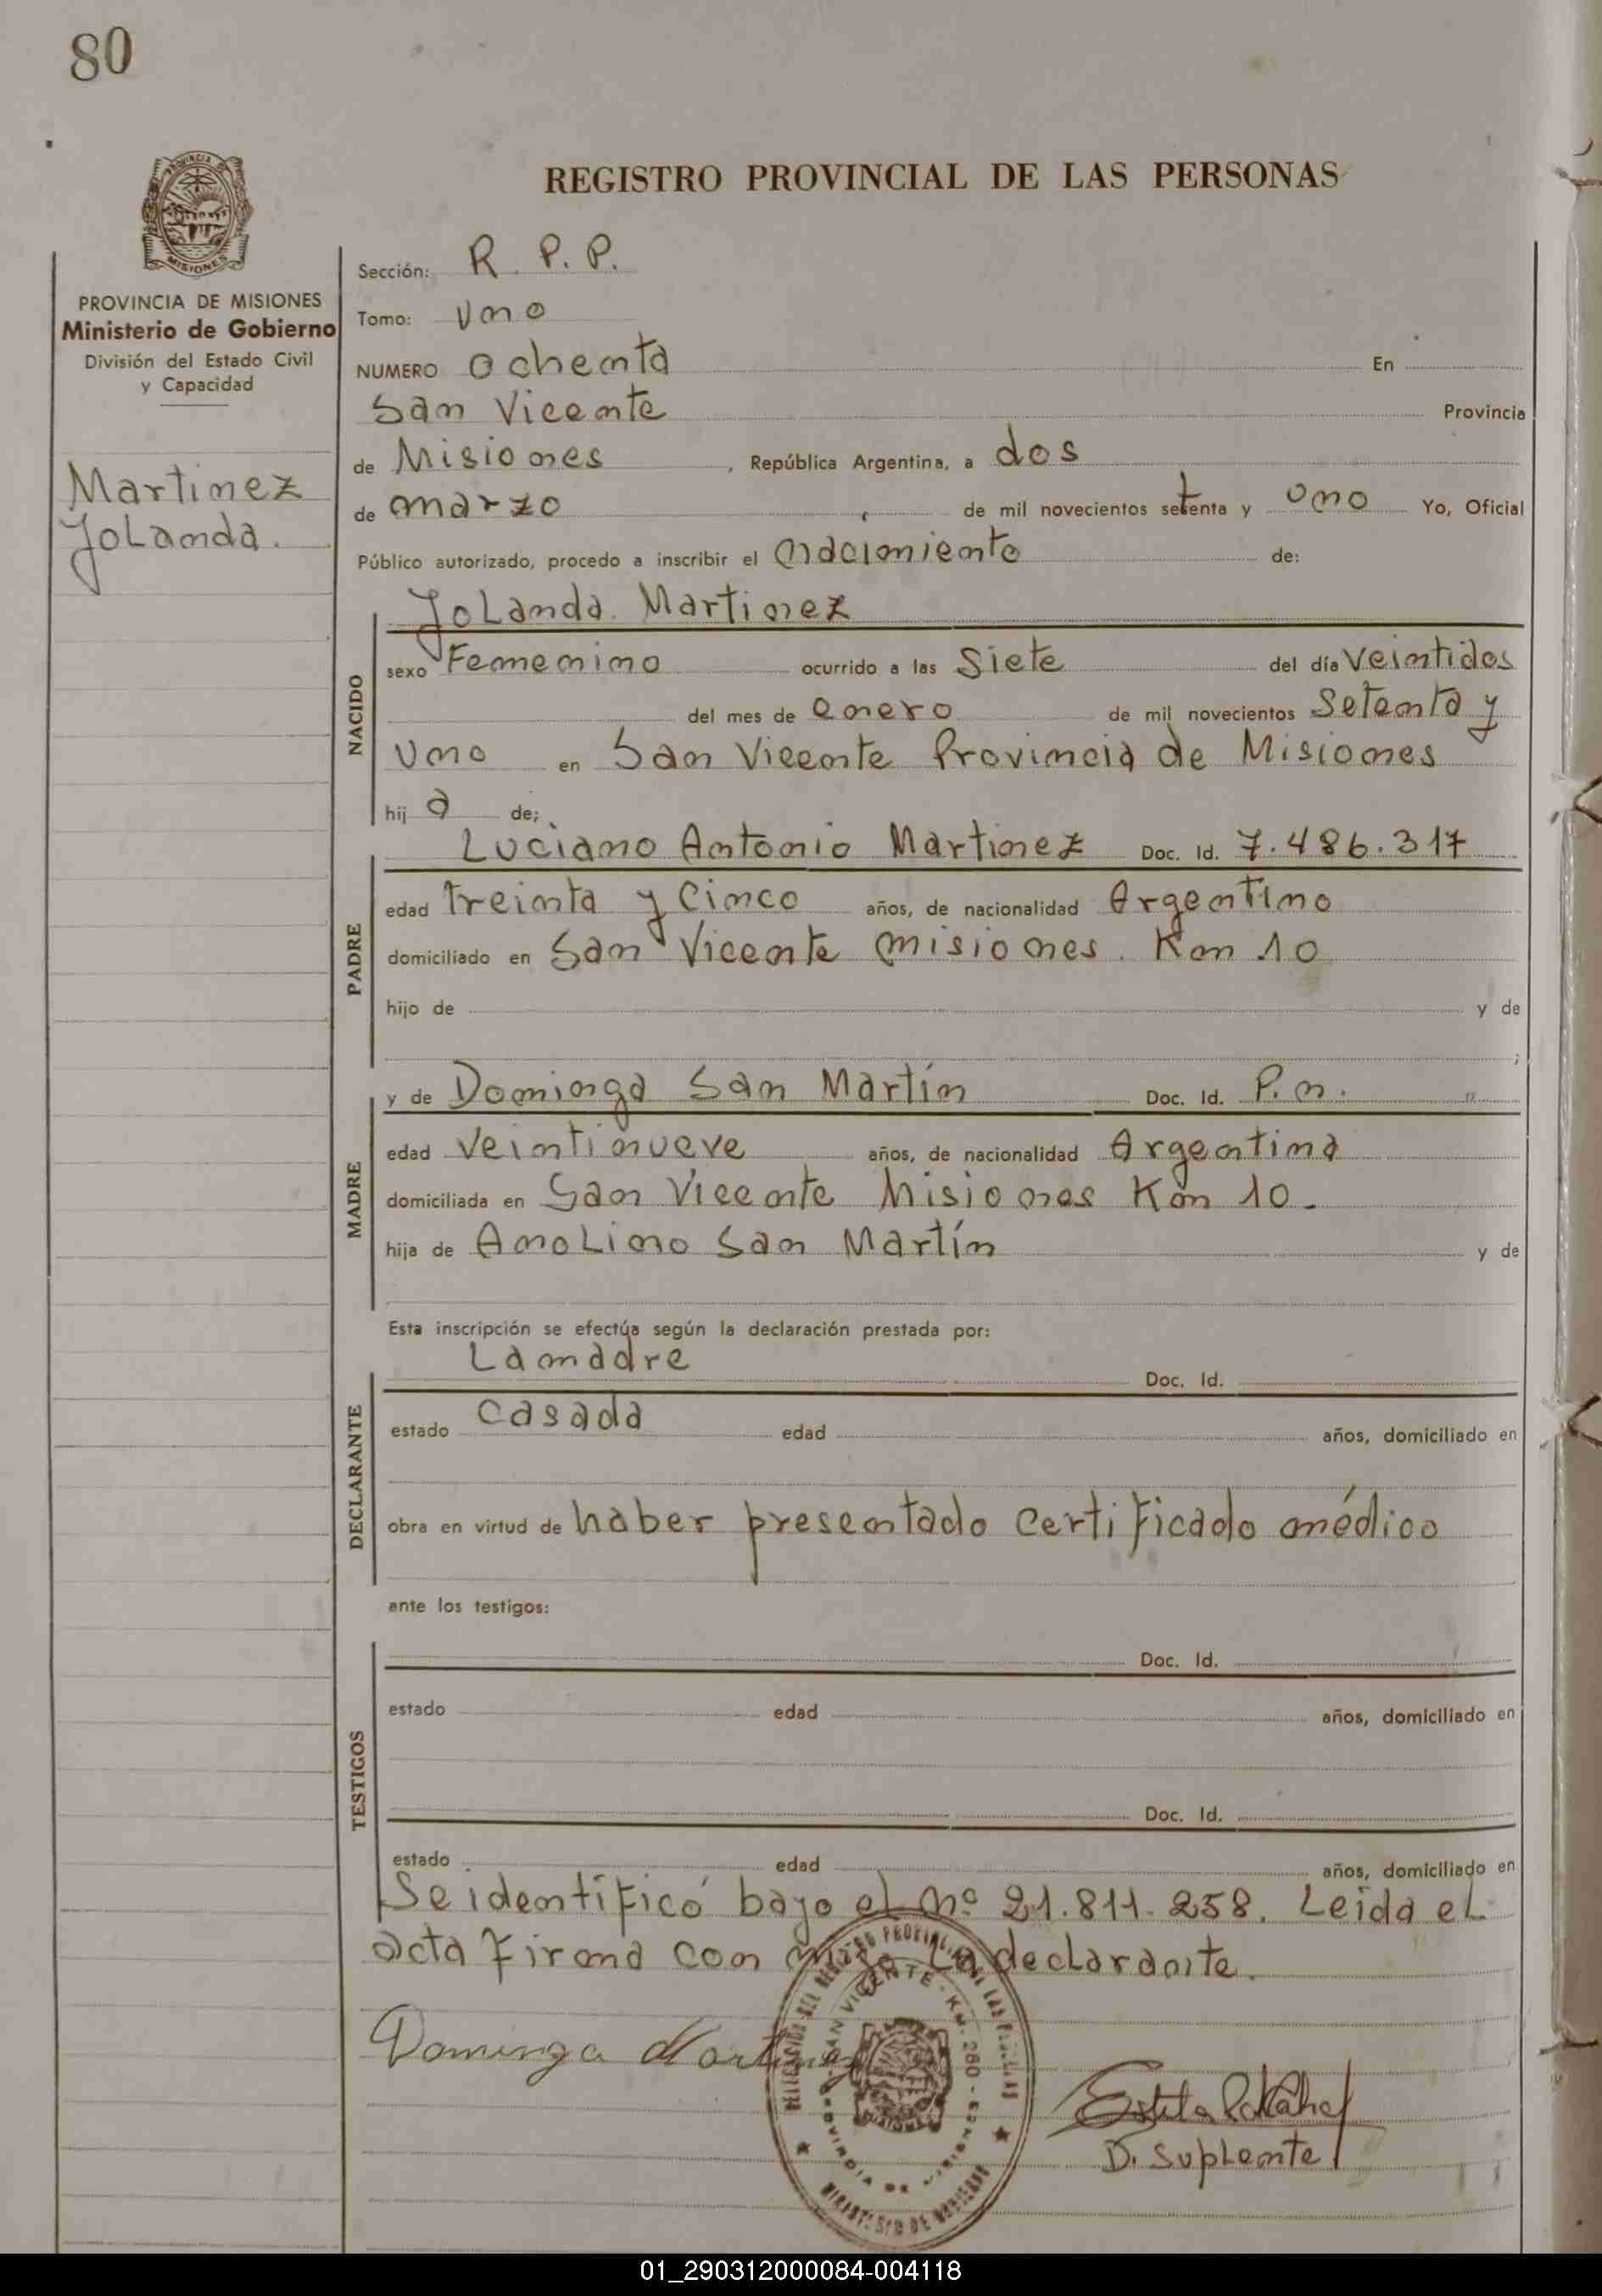 80
PROVINCIA DE
MISIONES
REGISTRO PROVINCIAL DE LAS PERSONAS
PROVINCIA DE MISIONES
Ministerio de Gobierno
División del Estado Civil
y Capacidad
Martinez
Yolanda.
Sección: R. P. P.
Tomo: Uno
NUMERO Ochenta En
San Vicente Provincia
de Misiones , República Argentina, a dos
de marzo de mil novecientos setenta y uno Yo, Oficial
Público autorizado, procedo a inscribir el nacimiento de:
NACIDO
Yolanda. Martinez
sexo Femenino ocurrido a las Siete del día Veintidos
del mes de enero de mil novecientos Setenta y
Uno en San Vicente Provincia de Misiones
hij a de;
PADRE
Luciano Antonio Martinez Doc. Id. 7.486.317
edad treinta y Cinco años, de nacionalidad Argentino
domiciliado en San Vicente misiones. Km 10
hijo de y de
;
MADRE
y de Dominga San Martín Doc. Id. P.n.
edad Veintinueve años, de nacionalidad Argentina
domiciliada en San Vicente Misiones Km 10.
hija de Anolino San Martín y de
Esta inscripción se efectúa según la declaración prestada por:
DECLARANTE
La madre Doc. Id.
estado Casada edad años, domiciliado en
obra en virtud de haber presentado Certificado médico
ante los testigos:
TESTIGOS
Doc. Id.
estado edad años, domiciliado en
Doc. Id.
estado edad años, domiciliado en
Se identificó bajo el nº 21.811.258. Leida el
acta firma con migo La declarante.
Dominga Martinez
D. Suplente
SAN VICENTE - KM. 260 - PROVINCIA DE MISIONES
MINISTERIO DE GOBIERNO
01_290312000084-004118